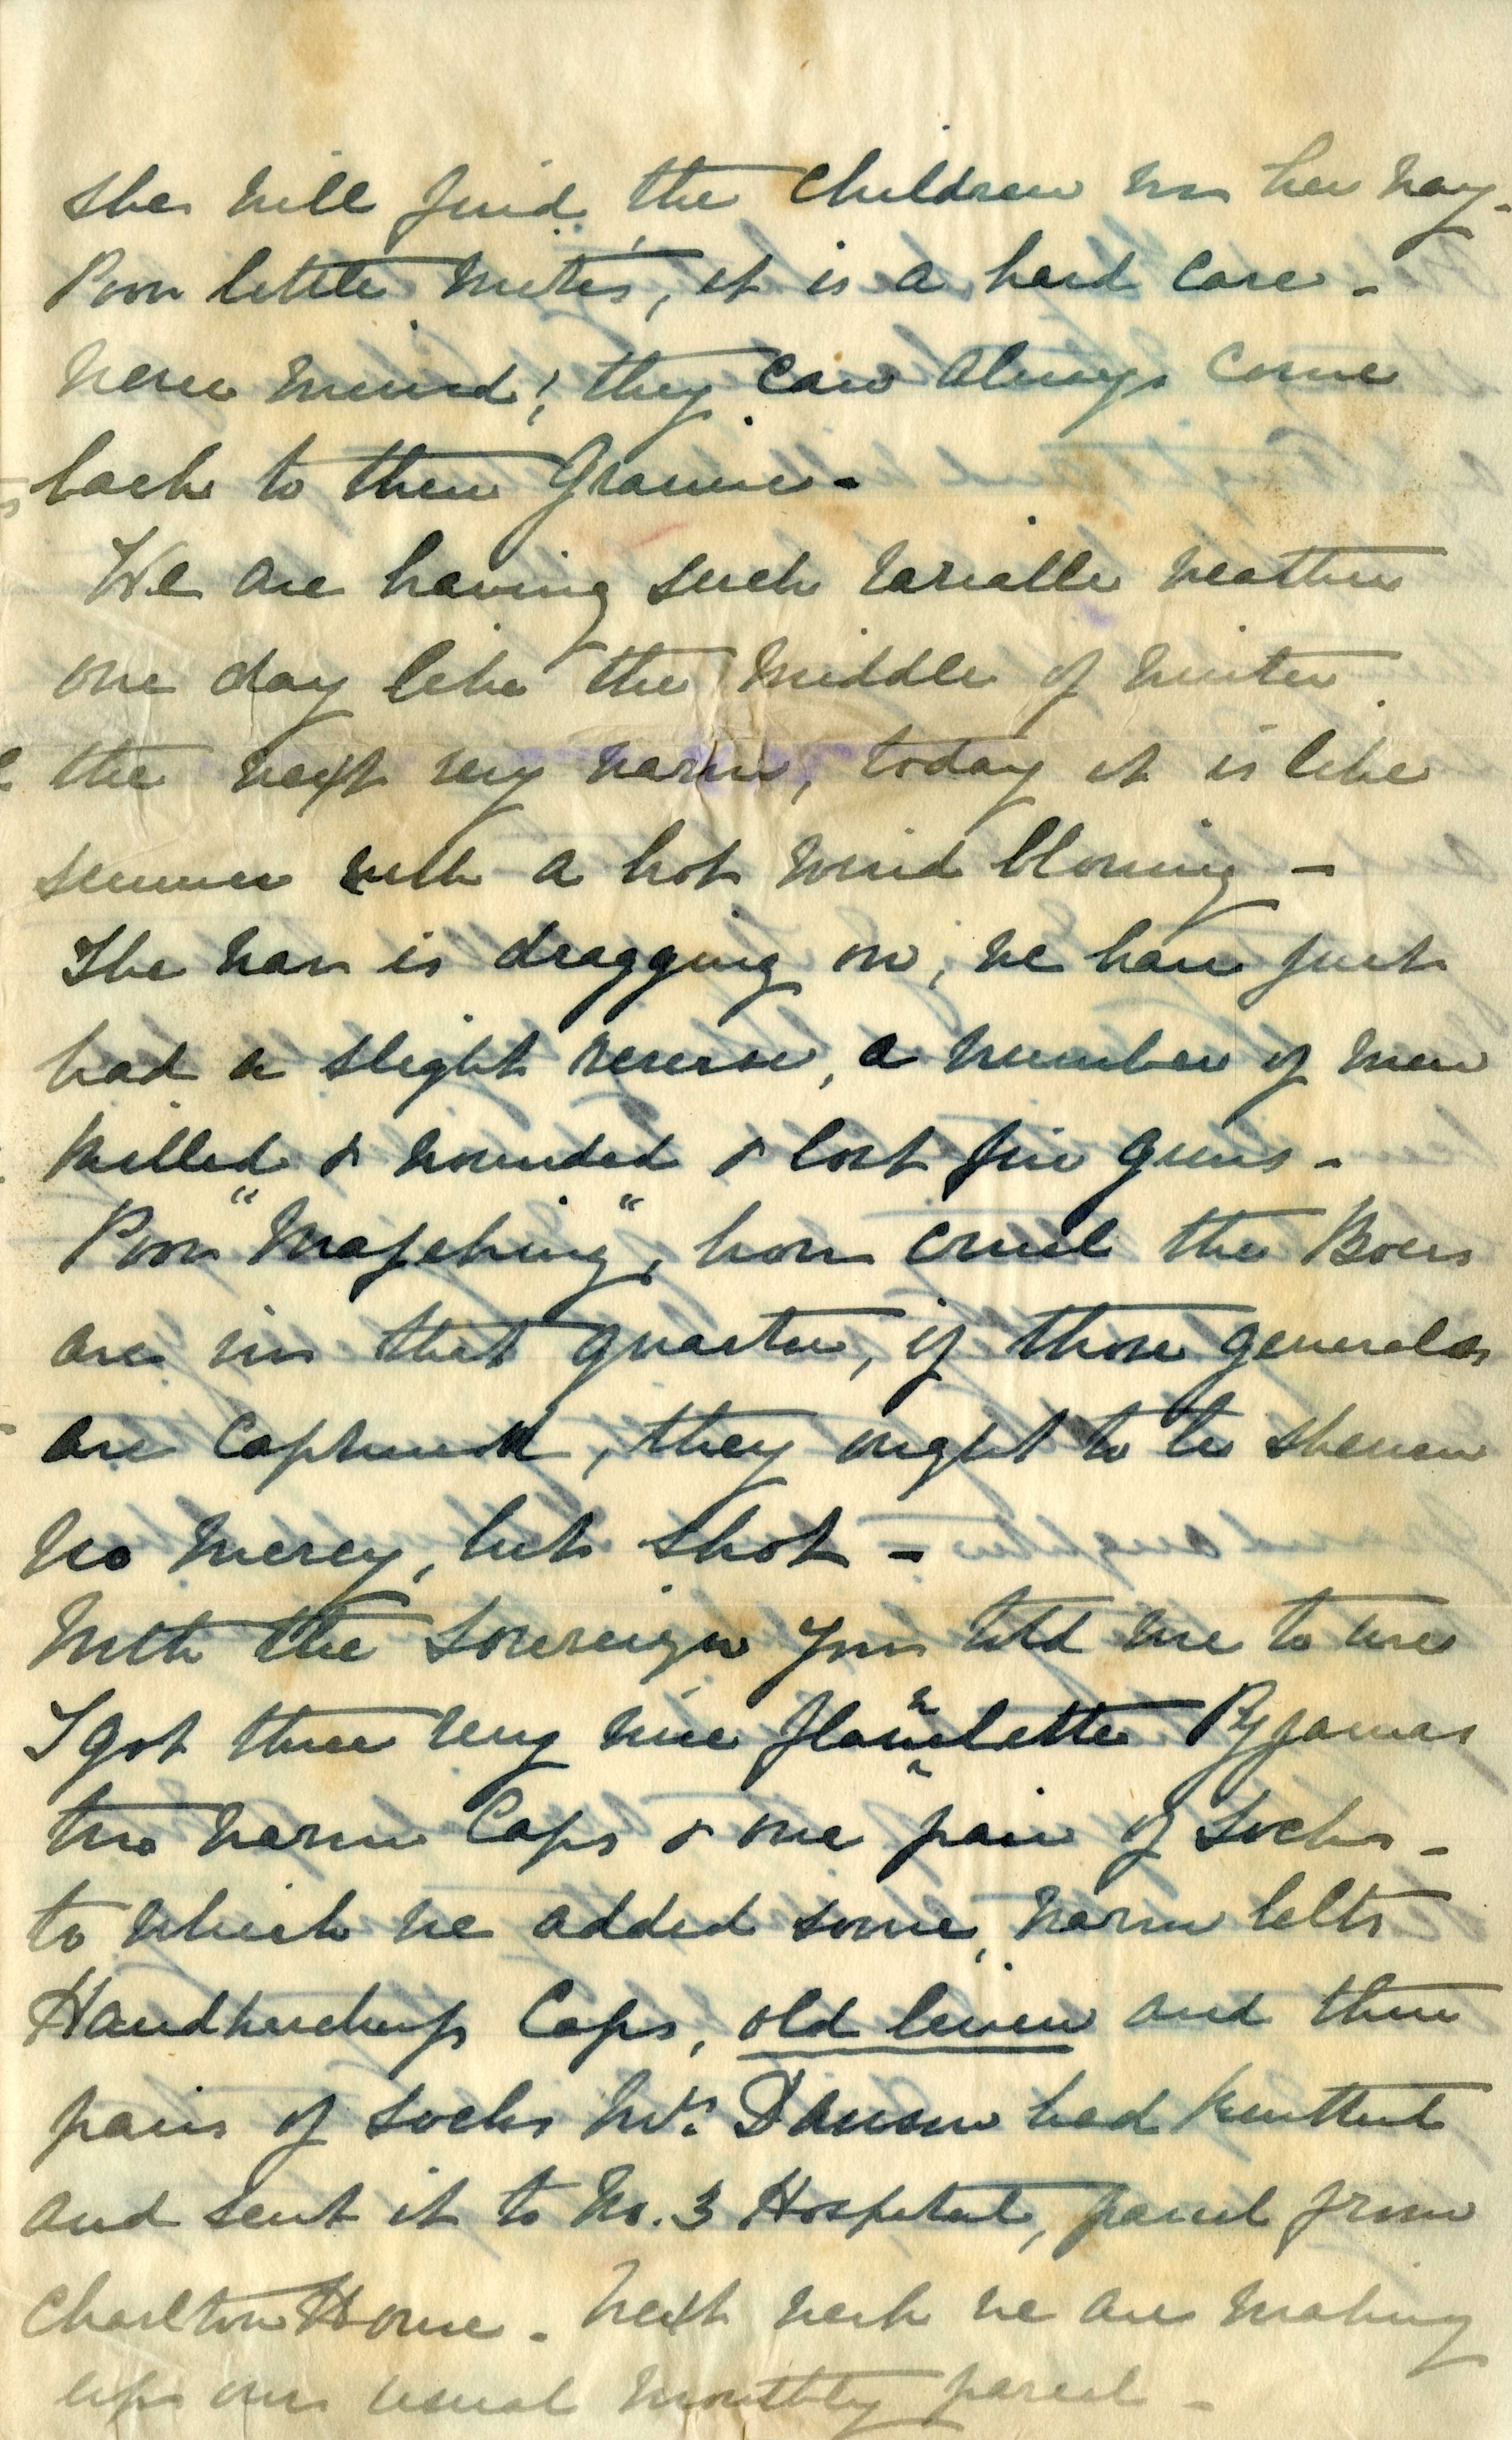 she will find the children in her way -
Poor little mites, it is a hard case -
never mind! they can always come
back to their Grannie -
We are having such variable weather
one day like the middle of winter
the next very warm, today it is like
summer with a hot wind blowing -
The war is dragging on, we have just
had a slight reverse, a number of men
killed & wounded & lost five guns -
Poor "Mafeking", how cruel the Boers
are in that quarter, if those generals
are captured, they ought to be shewn
no mercy, but shot -
With the Sovereign you told me to use
I got three very nice flannelette Pyjamas
two warm Caps & one pair of socks -
to which we added some, warm belts
Handkerchiefs Caps, old linen and three
pairs of socks Mrs. Dawson had knitted
and sent it to No. 3 Hospital, parcel from
Charlton House - Next week we are making
up our usual monthly parcel -